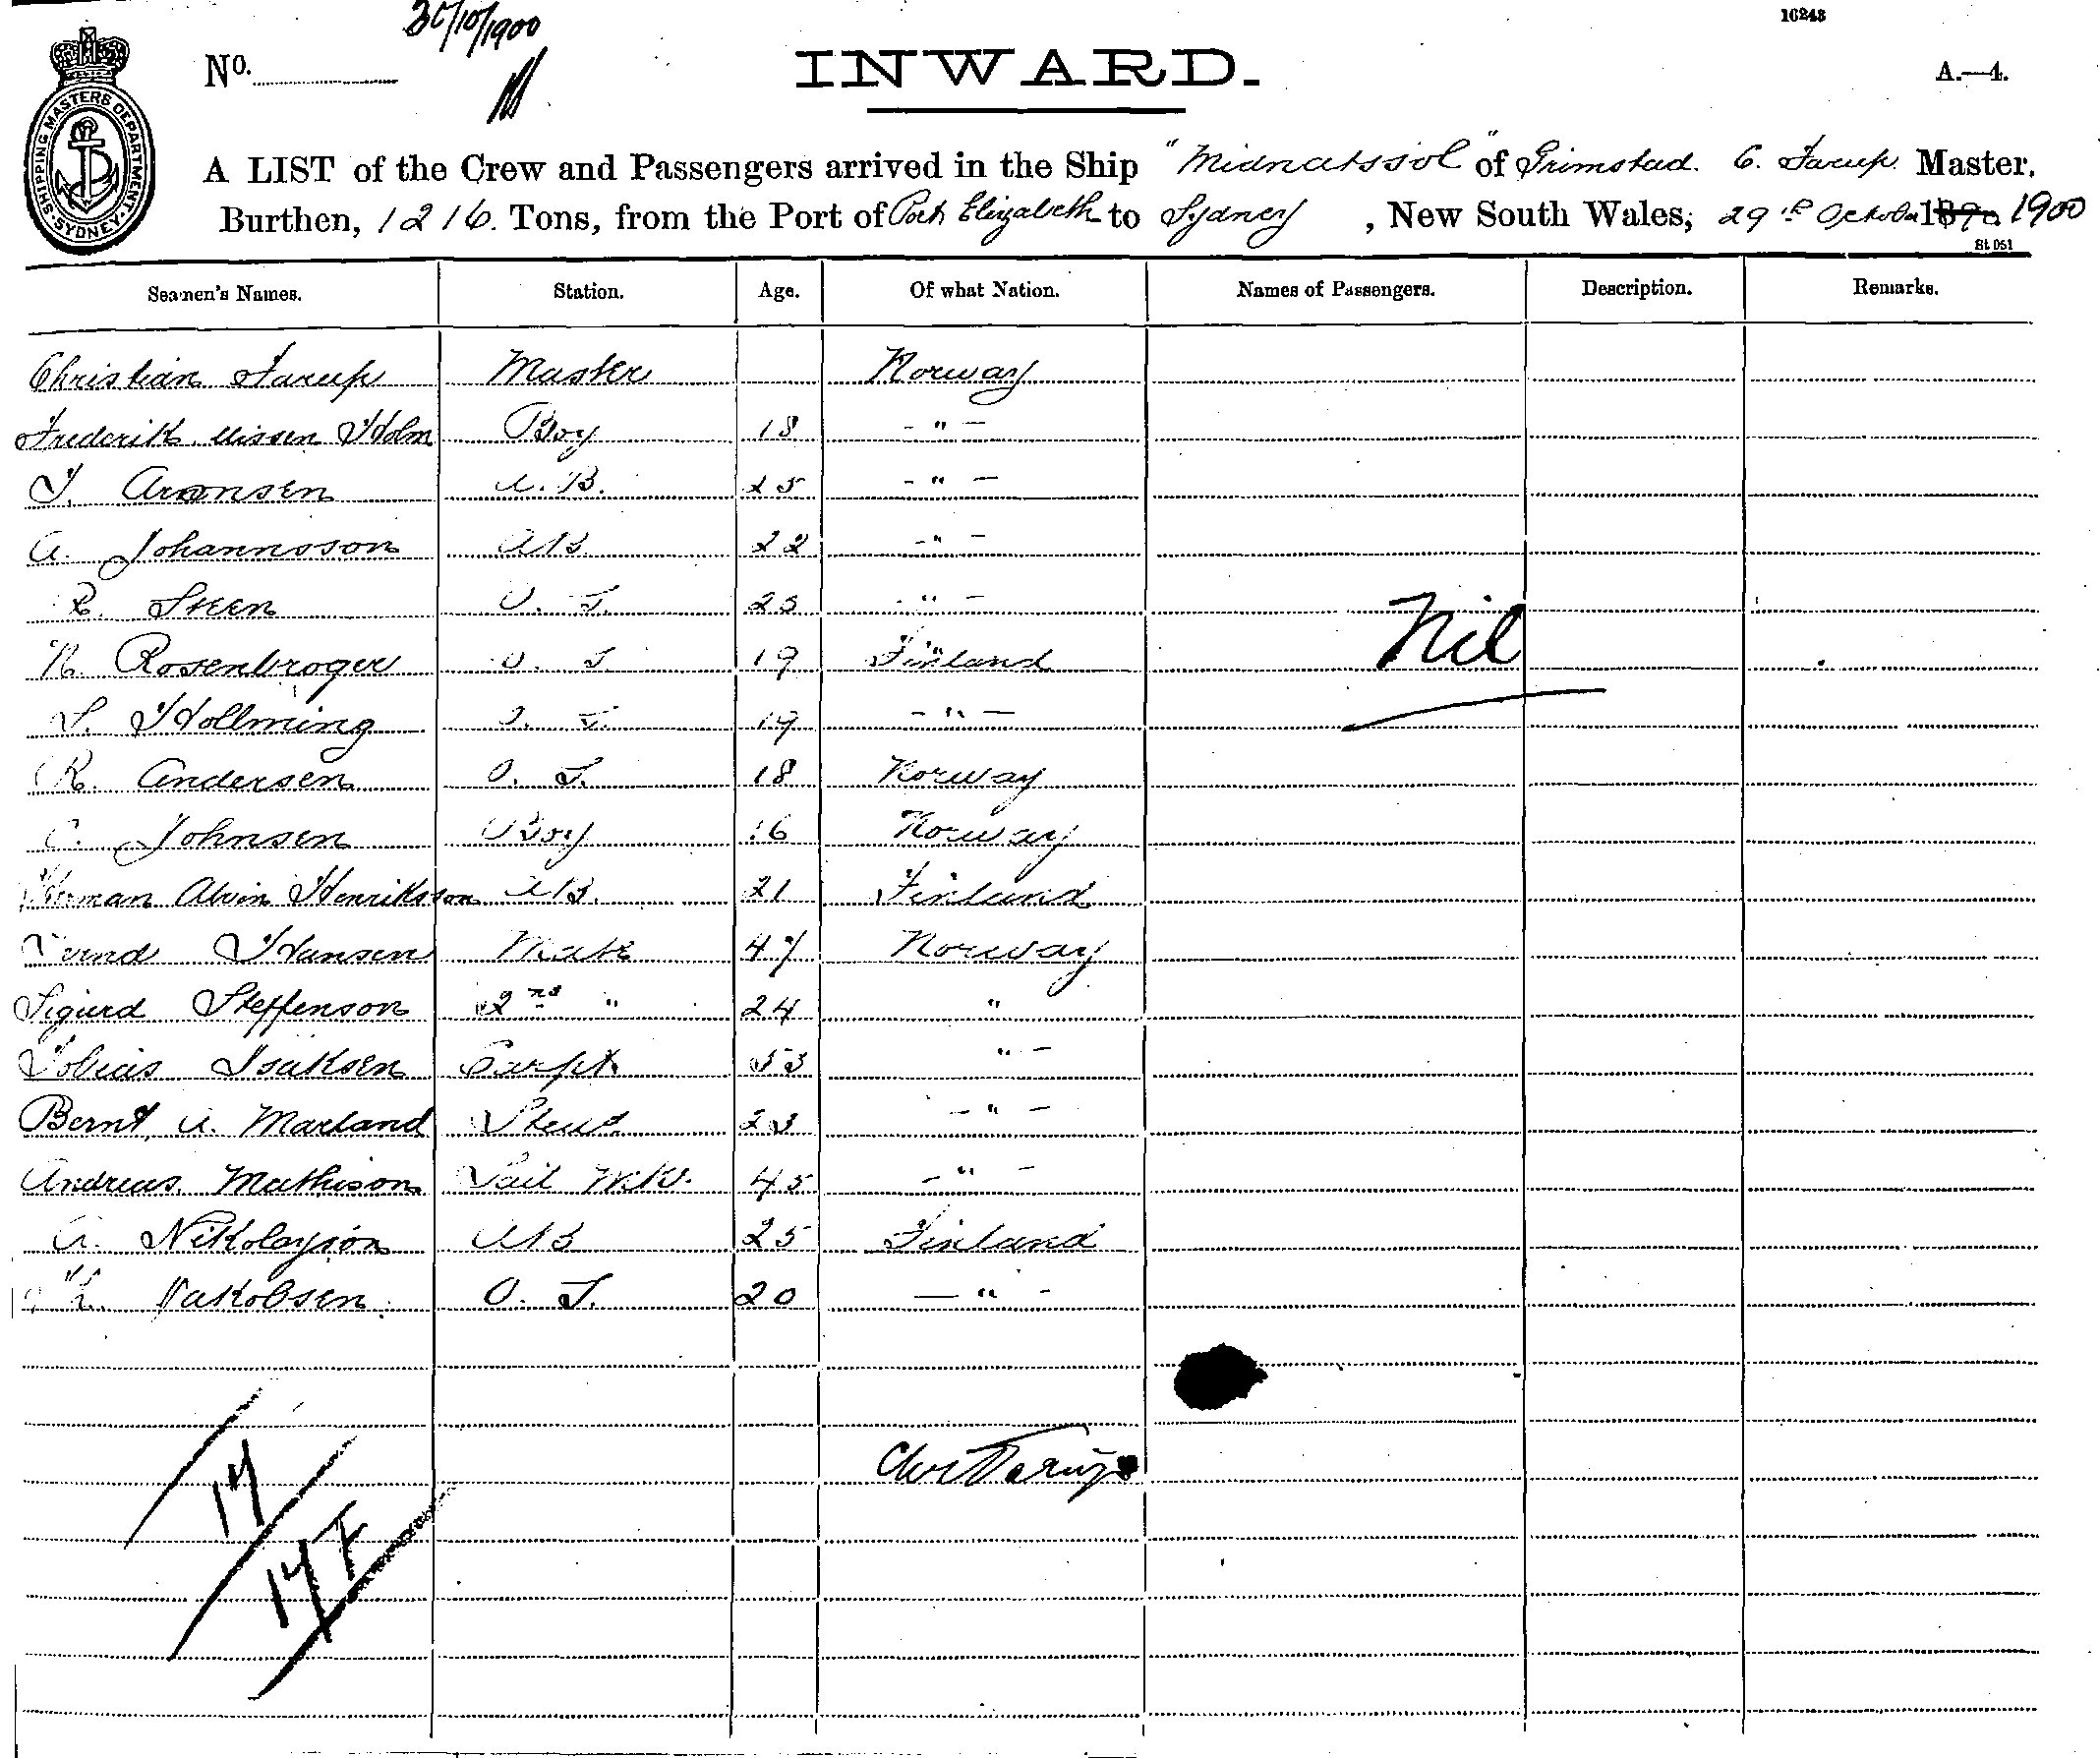 30/10/1900
16243
No.
INWARD.
A.—4.
SHIPPING MASTERS DEPARTMENT. SYDNEY.
A LIST of the Crew and Passengers arrived in the Ship "Midnatssol" of Grimstad. C. Tarup Master,
Burthen, 1216. Tons, from the Port of Port Elizabeth to Sydney, New South Wales, 29th October 189 1900
St 051
Seamen's Names. Station. Age. Of what Nation. Names of Passengers. Description. Remarks.
Christian Tarup Master Norway
Frederik Nissen Holm Boy 18 - " -
T. Aronsen A.B. 25 - " -
A. Johannson AB 22 - " -
R. Steen O. S. 25 - " -
N. Rosenbroger O. S 19 Finland
Nil
S. Hollming O. S. 19 - " -
R. Andersen O. S. 18 Norway
C. Johnsen Boy 16 Norway
Herman Alvin Henriksson AB. 21 Finland
Hansen Mate 47 Norway
Sigurd Steffenson 2nd " 24 "
Tobias Isaksen Carpt. 53 " -
Bernt A. Marland Stewd 23 - " -
Andreas Mathison Sail Mkr. 45 - " -
A. Nikolayson AB 25 Finland
K. Jakobsen O. S. 20 - " -
Chr Tarup
17
17 F